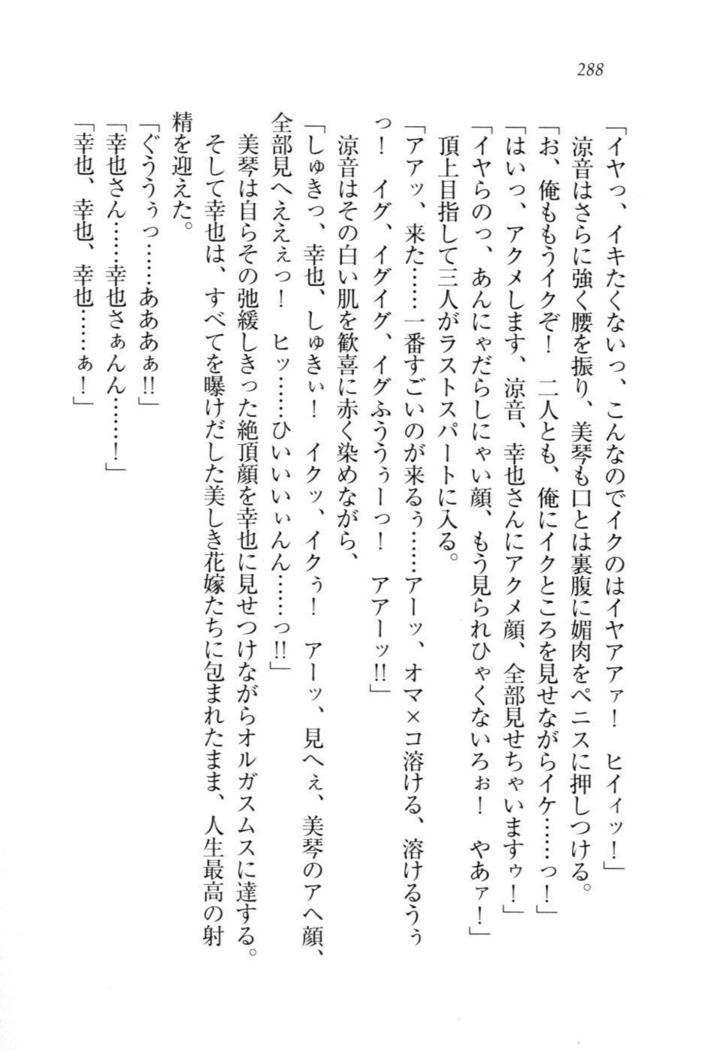 288
「イヤっ、イキたくないっ、こんなのでイクのはイヤアアァ！　ヒイィッ！」
涼音はさらに強く腰を振り、美琴も口とは裏腹に媚肉をペニスに押しつける。
「お、俺ももうイクぞ！　二人とも、俺にイクところを見せながらイケ……っ！」
「はいっ、アクメします、涼音、幸也さんにアクメ顔、全部見せちゃいますゥ！」
「イヤらのっ、あんにゃだらしにゃい顔、もう見られひゃくないろぉ！　やあァ！」
頂上目指して三人がラストスパートに入る。
「アアッ、来た……一番すごいのが来るぅ……アーッ、オマ×コ溶ける、溶けるうぅ
っ！　イグ、イグイグ、イグふううぅーっ！　アアーッ!!」
涼音はその白い肌を歓喜に赤く染めながら、
「しゅきっ、幸也、しゅきぃ！　イクッ、イクぅ！　アーッ、見へぇ、美琴のアヘ顔、
全部見へええぇっ！　ヒッ……ひいいいぃんん……っ!!」
美琴は自らその弛緩しきった絶頂顔を幸也に見せつけながらオルガスムスに達する。
そして幸也は、すべてを曝けだした美しき花嫁たちに包まれたまま、人生最高の射
精を迎えた。
「ぐううぅっ……あああぁ!!」
「幸也さん……幸也さぁんん……！」
「幸也、幸也、幸也……ぁ！」